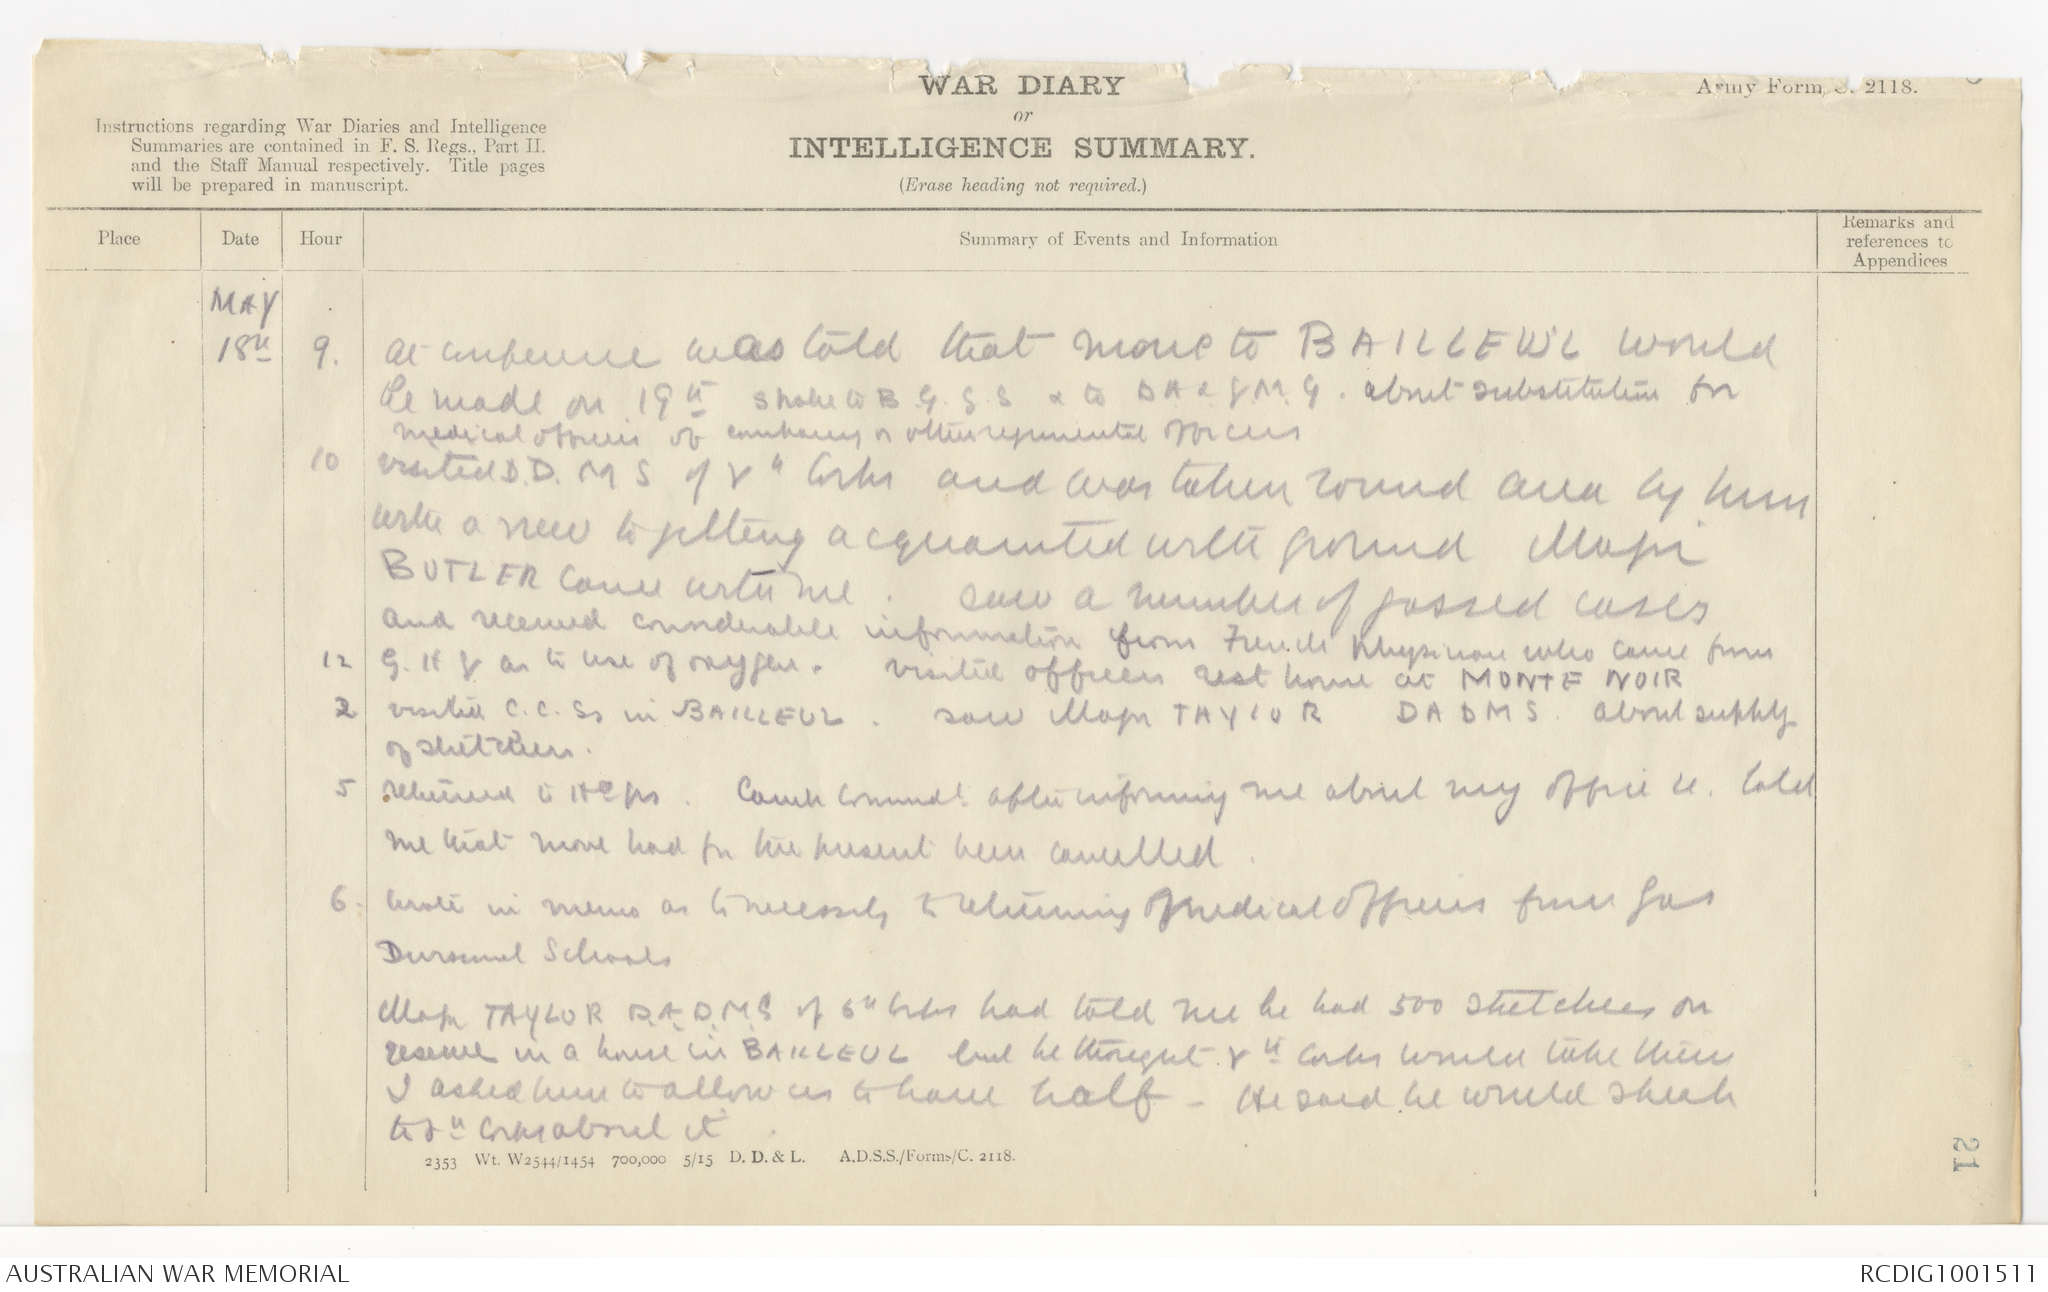 WAR DIARY
or
INTELLIGENCE SUMMARY.
(Erase heading not required.)
Army Form C. 2118.
Instructions regarding War Diaries and Intelligence
Summaries are contained in F. S. Regs., Part II.
and the Staff Manual respectively. Title pages
will be prepared in manuscript.
Place
Date
Hour
Summary of Events and Information
Remarks and
references to
Appendices
MAY
18th 9. At conference was told that move to BAILLEUL would
be made on 19th spoke to B.G.G.S & to DA & QMG. about substitution for
medical officers of company or other regimental officers
10 visited D.D.M S of Vth Corps and was taken round area by him
with a view to getting acquainted with ground Major
BUTLER came with me. Saw a number of gassed cases
and received considerable information from French Physician who came from
12 G.H Q as to use of oxygen. visited officers rest house at MONTE NOIR
2 visited C.C.Ss in BAILLEUL. saw Major TAYLOR DADMS. about supply
of stretchers.
5 returned to HQrs. Camp Commdt. after informing me about my office &c. told
me that move had for the present been cancelled.
6. wrote in memo as to necessity to returning medical officers from Gas
Divisional Schools
Major TAYLOR D.A.D.M.S of 5th Corps had told me he had 500 stretchers on
reserve in a house in BAILLEUL but he thought Vth Corps would take them
I asked him to allow us to have half - He said he would speak
to Vth Corps about it
2353 Wt. W2544/1454 700,000 5/15 D. D. & L. A.D.S.S./Forms/C. 2118.
21
AUSTRALIAN WAR MEMORIAL
RCDIG1001511